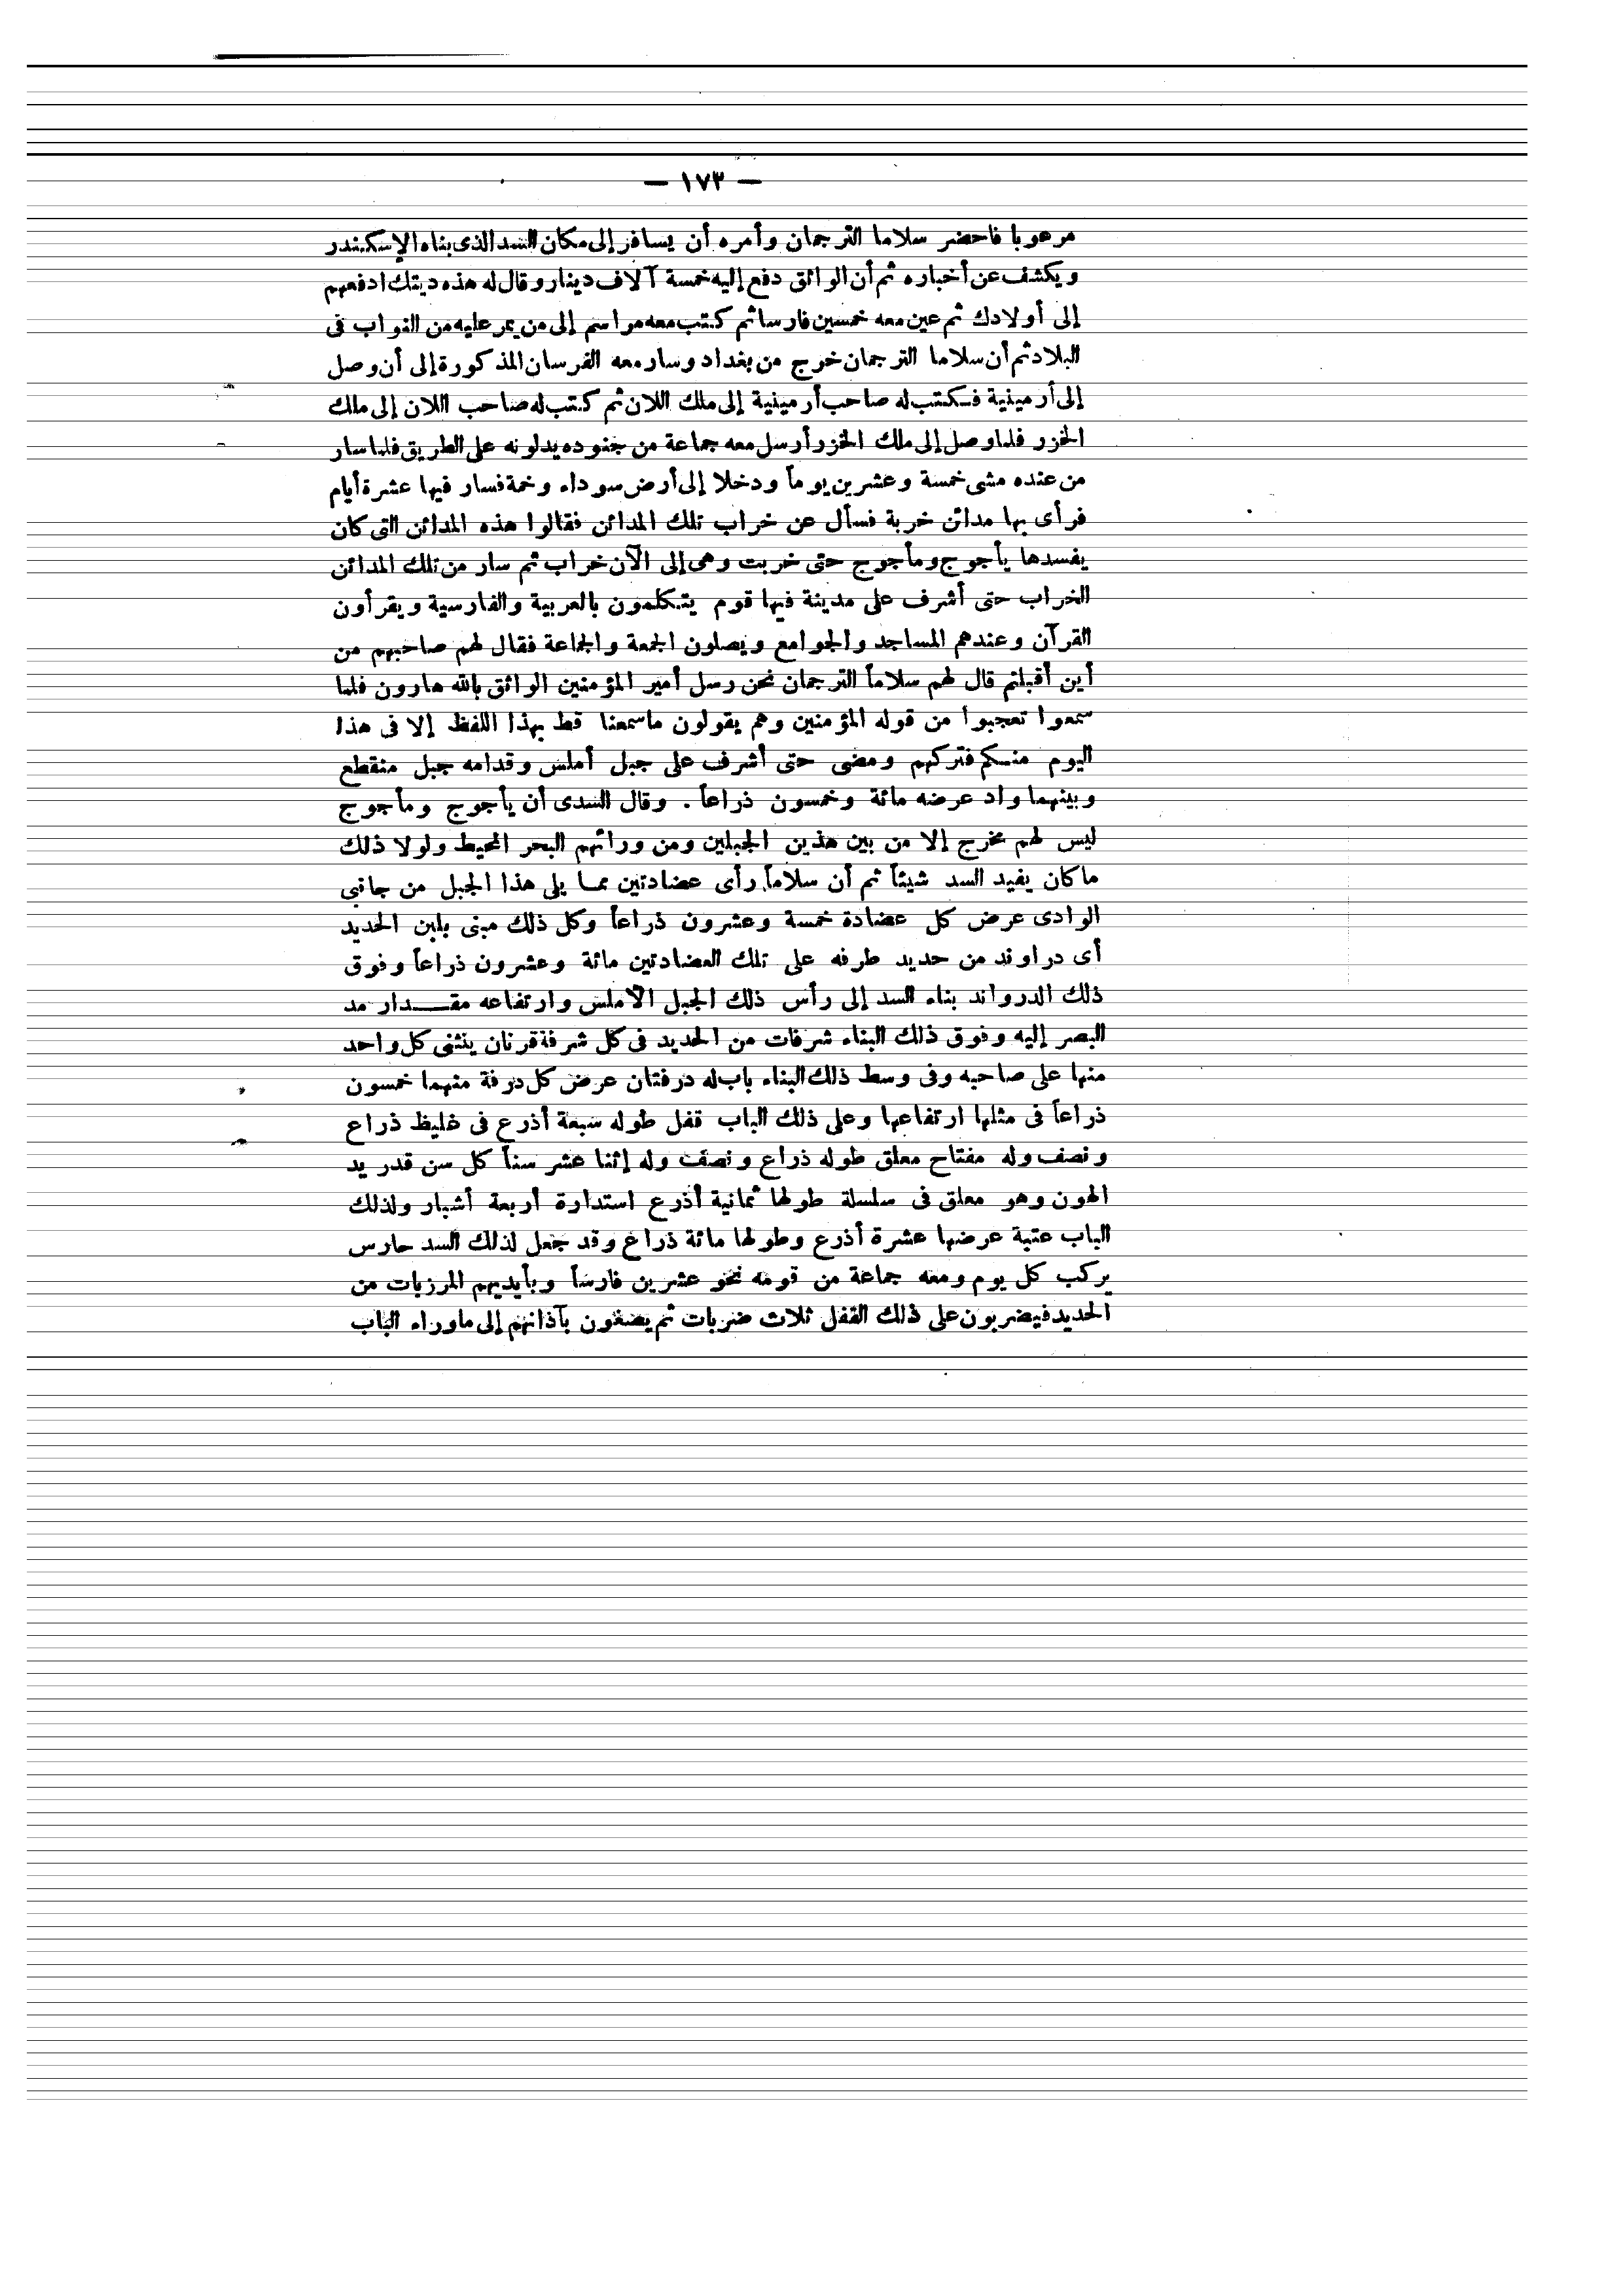 — ١٧٣ —
مرعوبا فاحضر سلاما الترجمان وأمره أن يسافر إلى مكان السد الذى بناه الإسكندر
ويكشف عن أخباره ثم أن الواثق دفع إليه خمسة آلاف دينار وقال له هذه ديتك ادفعهم
إلى أولادك ثم عين معه خمسين فارسا ثم كتب معه مراسم إلى من يمر عليه من النواب فى
البلاد ثم أن سلاما الترجمان خرج من بغداد وسار معه الفرسان المذكورة إلى أن وصل
إلى أرمينية فكتب له صاحب أرمينية إلى ملك اللان ثم كتب له صاحب اللان إلى ملك
الخزر فلما وصل إلى ملك الخزر أرسل معه جماعة من جنوده يدلونه على الطريق فلما سار
من عنده مشى خمسة وعشرين يوماً ودخلا إلى أرض سوداء وخمة فسار فيها عشرة أيام
فرأى بها مدائن خربة فسأل عن خراب تلك المدائن فقالوا هذه المدائن التى كان
يفسدها يأجوج ومأجوج حتى خربت وهى إلى الآن خراب ثم سار من تلك المدائن
الخراب حتى أشرف على مدينة فيها قوم يتكلمون بالعربية والفارسية ويقرأون
القرآن وعندهم المساجد والجوامع ويصلون الجمعة والجماعة فقال لهم صاحبهم من
أين أقبلتم قال لهم سلاماً الترجمان نحن رسل أمير المؤمنين الواثق بالله هارون فلما
سمعوا تعجبوا من قوله المؤمنين وهم يقولون ماسمعنا قط بهذا اللفظ إلا فى هذا
اليوم منكم فتركهم ومضى حتى أشرف على جبل أملس وقدامه جبل منقطع
وبينهما واد عرضه مائة وخمسون ذراعاً . وقال السدى أن يأجوج ومأجوج
ليس لهم مخرج إلا من بين هذين الجبلين ومن ورائهم البحر المحيط ولولا ذلك
ماكان يفيد السد شيئاً ثم أن سلاماً رأى عضادتين مما يلى هذا الجبل من جانبى
الوادى عرض كل عضادة خمسة وعشرون ذراعاً وكل ذلك مبنى بلبن الحديد
أى دراوند من حديد طرفه على تلك العضادتين مائة وعشرون ذراعاً وفوق
ذلك الدرواند بناء السد إلى رأس ذلك الجبل الاملس وارتفاعه مقدار مد
البصر إليه وفوق ذلك البناء شرفات من الحديد فى كل شرفة قرنان ينثنى كل واحد
منها على صاحبه وفى وسط ذلك البناء باب له درفتان عرض كل درفة منهما خمسون
ذراعاً فى مثلها ارتفاعها وعلى ذلك الباب قفل طوله سبعة أذرع فى غليظ ذراع
ونصف وله مفتاح معلق طوله ذراع ونصف وله إثنا عشر سناً كل سن قدر يد
الهون وهو معلق فى سلسلة طولها ثمانية أذرع استدارة أربعة أشبار ولذلك
الباب عتبة عرضها عشرة أذرع وطولها مائة ذراع وقد جعل لذلك السد حارس
يركب كل يوم ومعه جماعة من قومه نحو عشرين فارساً وبأيديهم المرزبات من
الحديد فيضربون على ذلك القفل ثلاث ضربات ثم يضغون بآذانهم إلى ماوراء الباب